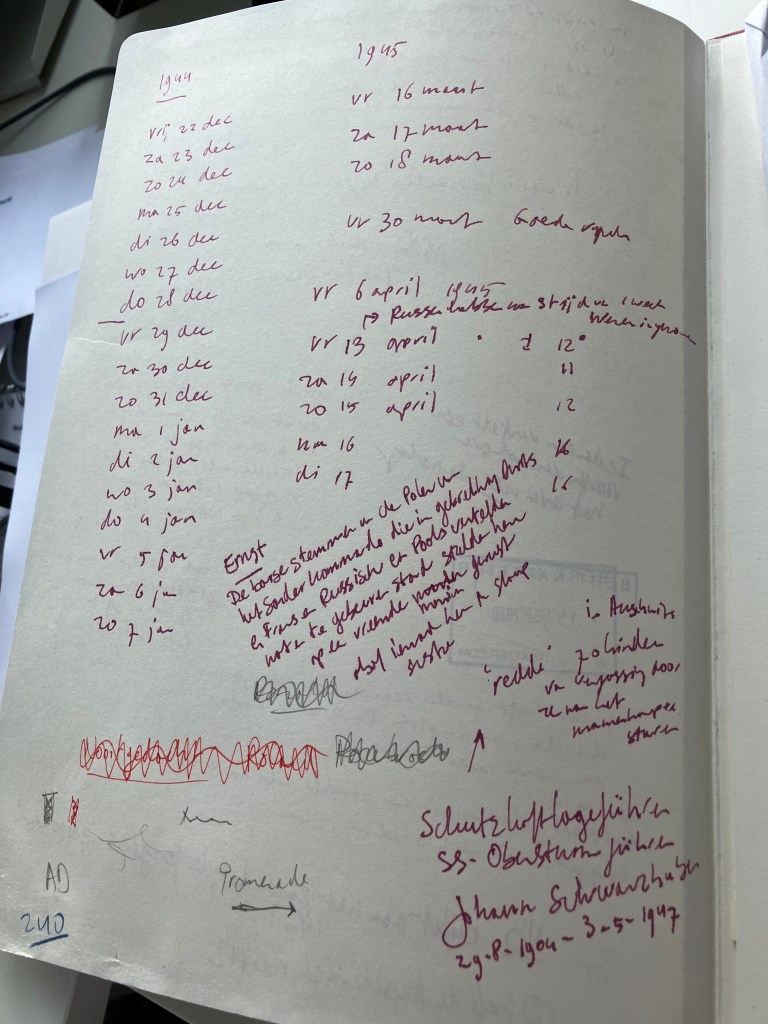 1944
vrij 22 dec
za 23 dec
zo 24 dec
ma 25 dec
di 26 dec
wo 27 dec
do 28 dec
vr 29 dec
za 30 dec
zo 31 dec
ma 1 jan
di 2 jan
wo 3 jan
do 4 jan
vr 5 jan
za 6 jan
zo 7 jan
1945
vr 16 maart
za 17 maart
zo 18 maart
vr 30 maart Goede
vr 6 april 1945
→ Russen hebben na strijd van 1 week
Wenen ingenomen
vr 13 april 12°
za 14 april 11
zo 15 april 12
ma 16 16
di 17 16
Ernst
De barse stemmen van de Polen van
het Sonderkommando die in gebrekkig Duits
en Frans en Russisch en Pools vertelden
wat er te gebeuren stond stelden hen
op een vreemde manier gerust
alsof iemand hen in slaap
suste
in Auschwitz
'redde' 20 kinderen
van vergassing door
ze naar het
mannenkamp te
sturen
Schutzhaftlagerführer
SS-Obersturmführer
Johann Schwarzhuber
29-8-1904 - 3-5-1947
AD
Promenade
240